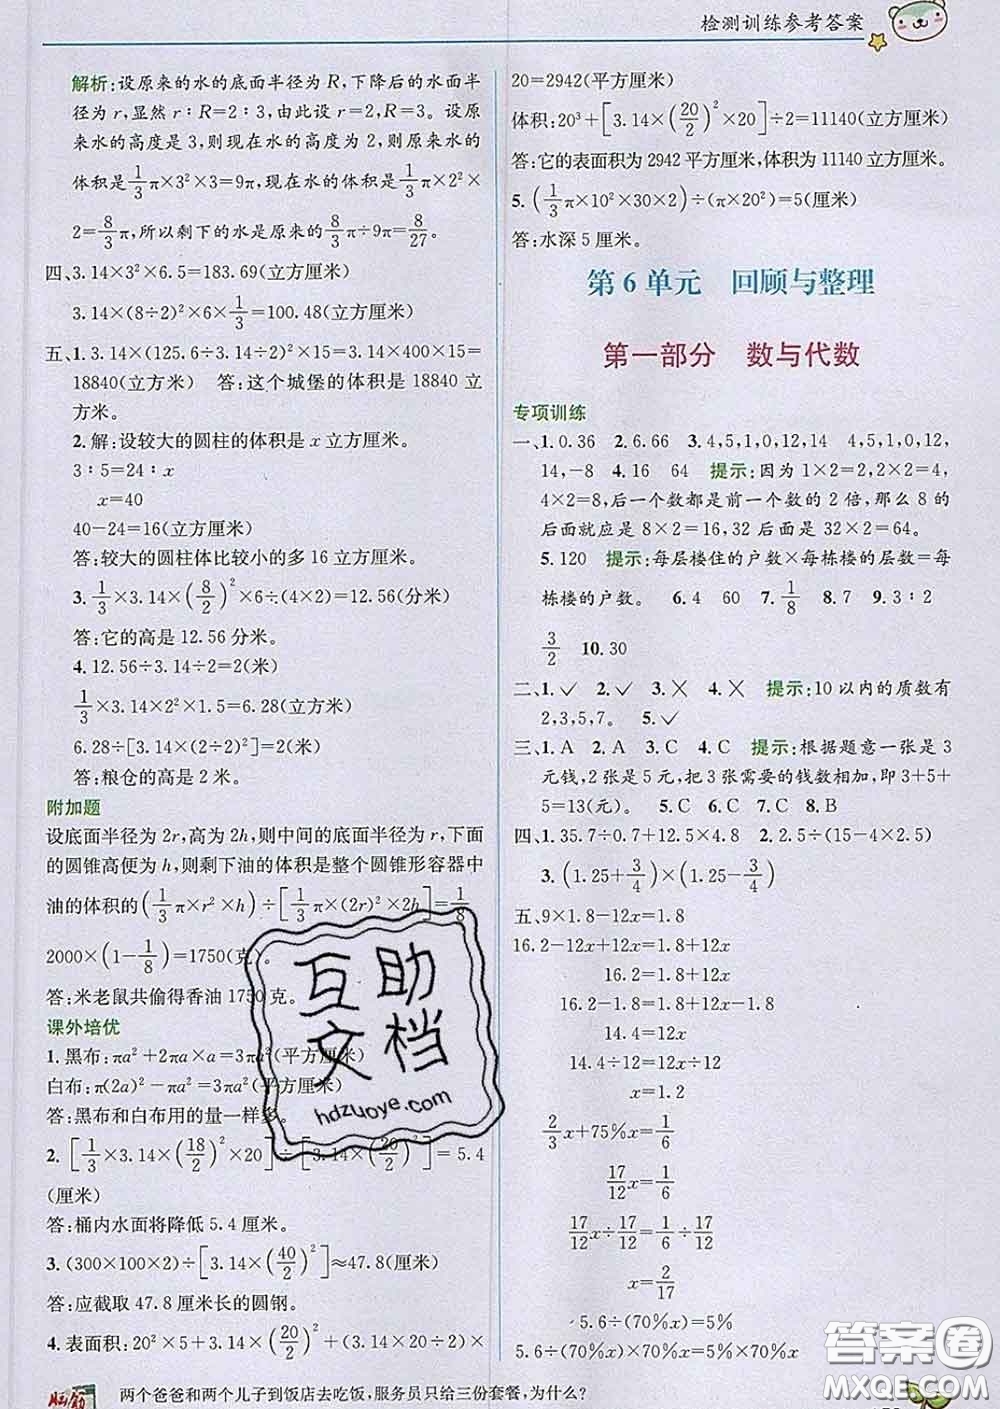 检测训练参考答案
解析:设原来的水的底面半径为R,下降后的水面半
径为r,显然r∶R=2∶3,由此设r=2,R=3。设原
来水的高度是3,则现在水的高度为2,则原来水的
体积是1/3π×3²×3=9π,现在水的体积是1/3π×2²×
2=8/3π,所以剩下的水是原来的8/3π÷9π=8/27。
四、3.14×3²×6.5=183.69(立方厘米)
3.14×(8÷2)²×6×1/3=100.48(立方厘米)
五、1.3.14×(125.6÷3.14÷2)²×15=3.14×400×15=
18840(立方米) 答:这个城堡的体积是18840立
方米。
2.解:设较大的圆柱的体积是x立方厘米。
3∶5=24∶x
x=40
40-24=16(立方厘米)
答:较大的圆柱体比较小的多16立方厘米。
3.1/3×3.14×(8/2)²×6÷(4×2)=12.56(分米)
答:它的高是12.56分米。
4.12.56÷3.14÷2=2(米)
1/3×3.14×2²×1.5=6.28(立方米)
6.28÷[3.14×(2÷2)²]=2(米)
答:粮仓的高是2米。
附加题
设底面半径为2r,高为2h,则中间的底面半径为r,下面
的圆锥高便为h,则剩下油的体积是整个圆锥形容器中
油的体积的(1/3π×r²×h)÷[1/3π×(2r)²×2h]=1/8
2000×(1-1/8)=1750(克)。
答:米老鼠共偷得香油1750克。
课外培优
1.黑布:πa²+2πa×a=3πa²(平方厘米)
白布:π(2a)²-πa²=3πa²(平方厘米)
答:黑布和白布用的量一样多。
2.[1/3×3.14×(18/2)²×20]÷[3.14×(20/2)²]=5.4
(厘米)
答:桶内水面将降低5.4厘米。
3.(300×100×2)÷[3.14×(40/2)²]≈47.8(厘米)
答:应截取47.8厘米长的圆钢。
4.表面积:20²×5+3.14×(20/2)²+(3.14×20÷2)×
20=2942(平方厘米)
体积:20³+[3.14×(20/2)²×20]÷2=11140(立方厘米)
答:它的表面积为2942平方厘米,体积为11140立方厘米。
5.(1/3π×10²×30×2)÷(π×20²)=5(厘米)
答:水深5厘米。
第6单元 回顾与整理
第一部分 数与代数
专项训练
一、1.0.36 2.6.66 3.4,5,1,0,12,14 4,5,1,0,12,
14,-8 4.16 64 提示:因为1×2=2,2×2=4,
4×2=8,后一个数都是前一个数的2倍,那么8的
后面就应是8×2=16,32后面应是32×2=64。
5.120 提示:每层楼住的户数×每栋楼的层数=每
栋楼的户数。 6.4 60 7.1/8 8.7 9.3∶2
3/2 10.30
二、1.✓ 2.✓ 3.✕ 4.✕ 提示:10以内的质数有
2,3,5,7。 5.✓
三、1.A 2.A 3.C 4.C 提示:根据题意一张是3
元钱,2张是5元,把3张需要的钱数相加,即3+5+
5=13(元)。 5.C 6.C 7.C 8.B
四、1.35.7÷0.7+12.5×4.8 2.2.5÷(15-4×2.5)
3.(1.25+3/4)×(1.25-3/4)
五、9×1.8-12x=1.8
16.2-12x+12x=1.8+12x
16.2=1.8+12x
16.2-1.8=1.8-1.8+12x
14.4=12x
14.4÷12=12x÷12
x=1.2
2/3x+75%x=1/6
17/12x=1/6
17/12x÷17/12=1/6÷17/12
x=2/17
5.6÷(70%x)=5%
5.6÷(70%x)×70%x=5%×70%x
两个爸爸和两个儿子到饭店去吃饭,服务员只给三份套餐,为什么?
互助
文档
hdzuoye.com
答案圈
MXQE.COM